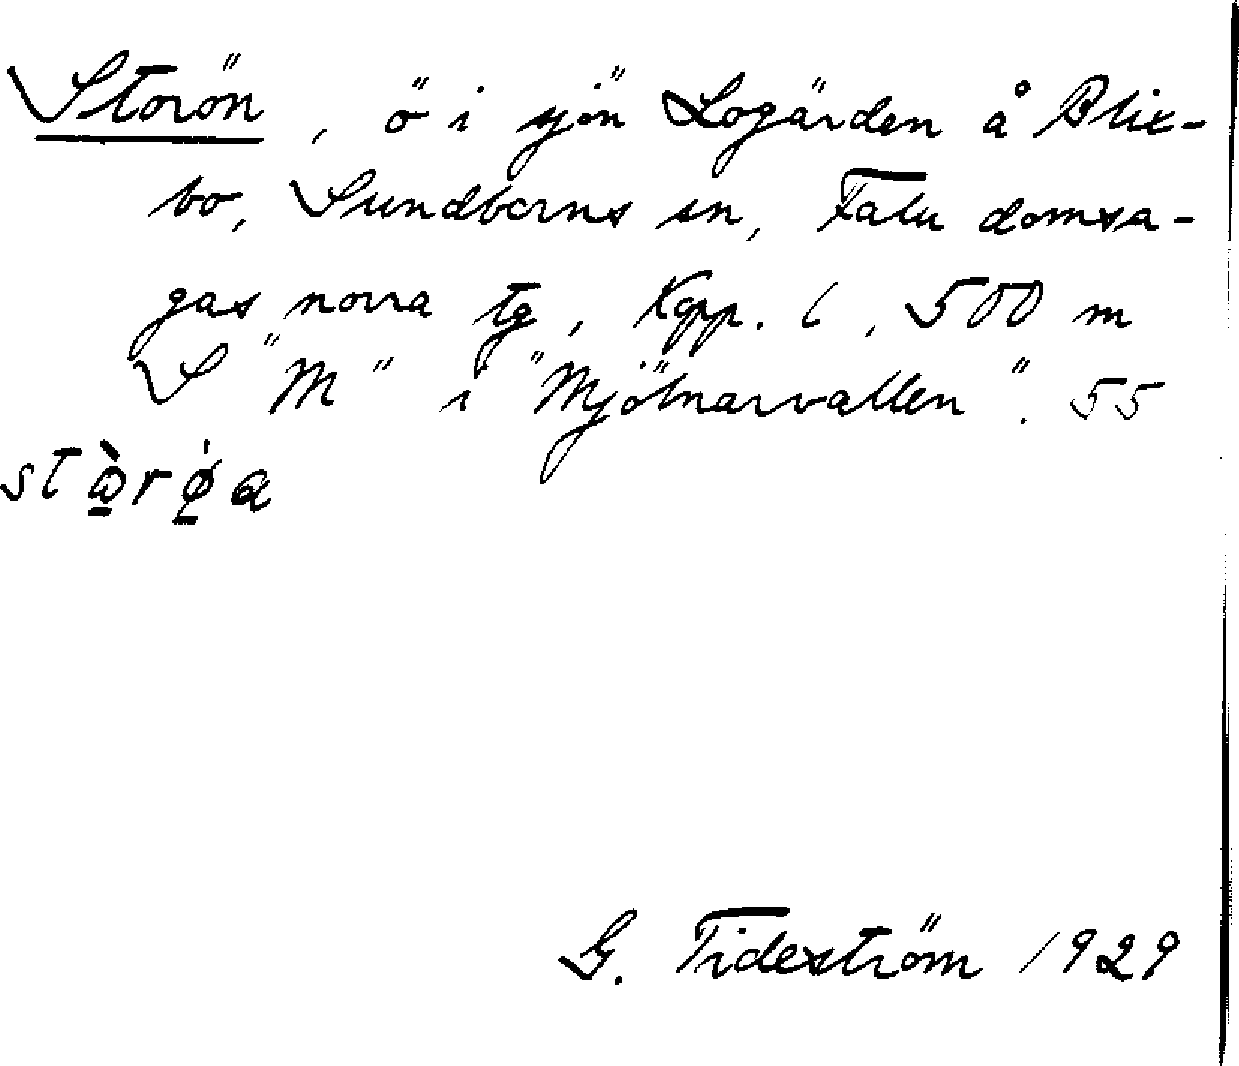 Storön, ö i sjön Logärden å Blix-
bo, Sundborns sn, Falu domsa-
gas norra tg, Kopp. l, 500 m
S "M" i "Mjölnarvallen". 55
G. Tideström 1929